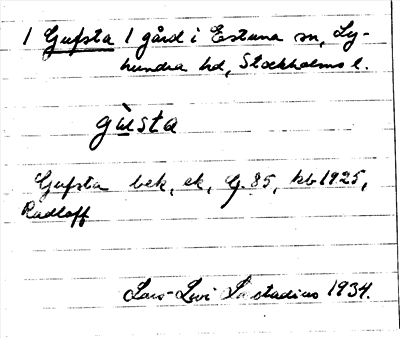 1 Gufsta 1 gård i Estuna sn, Ly-
hundra hd, Stockholms l.
gùsta
Gufsta bek, ek, G. 85, kb 1925,
Radloff
Lars-Levi Læstadius 1934.